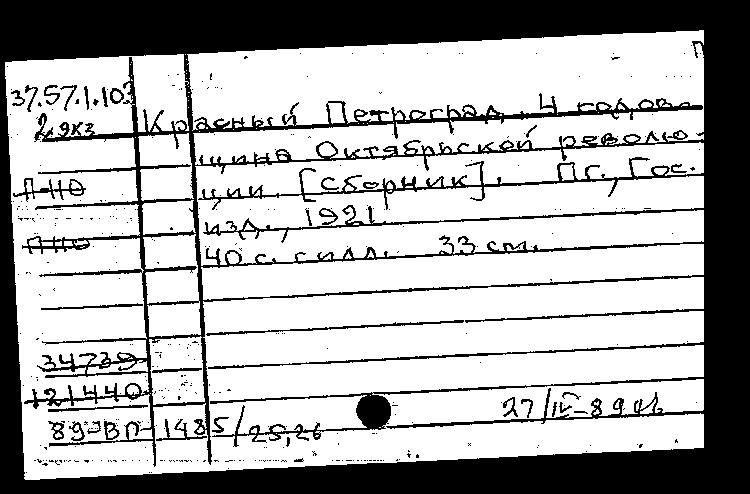 П
37.57.1.103
2 экз Красный Петроград. 4 годов-
щина Октябрьской револю-
П-НО ции. [Сборник]. Пг., Гос.
изд., 1921
ПНО
40 с. с илл. 33 см.
34739
121440
27/IV-89
89-ВП-1485/25,26